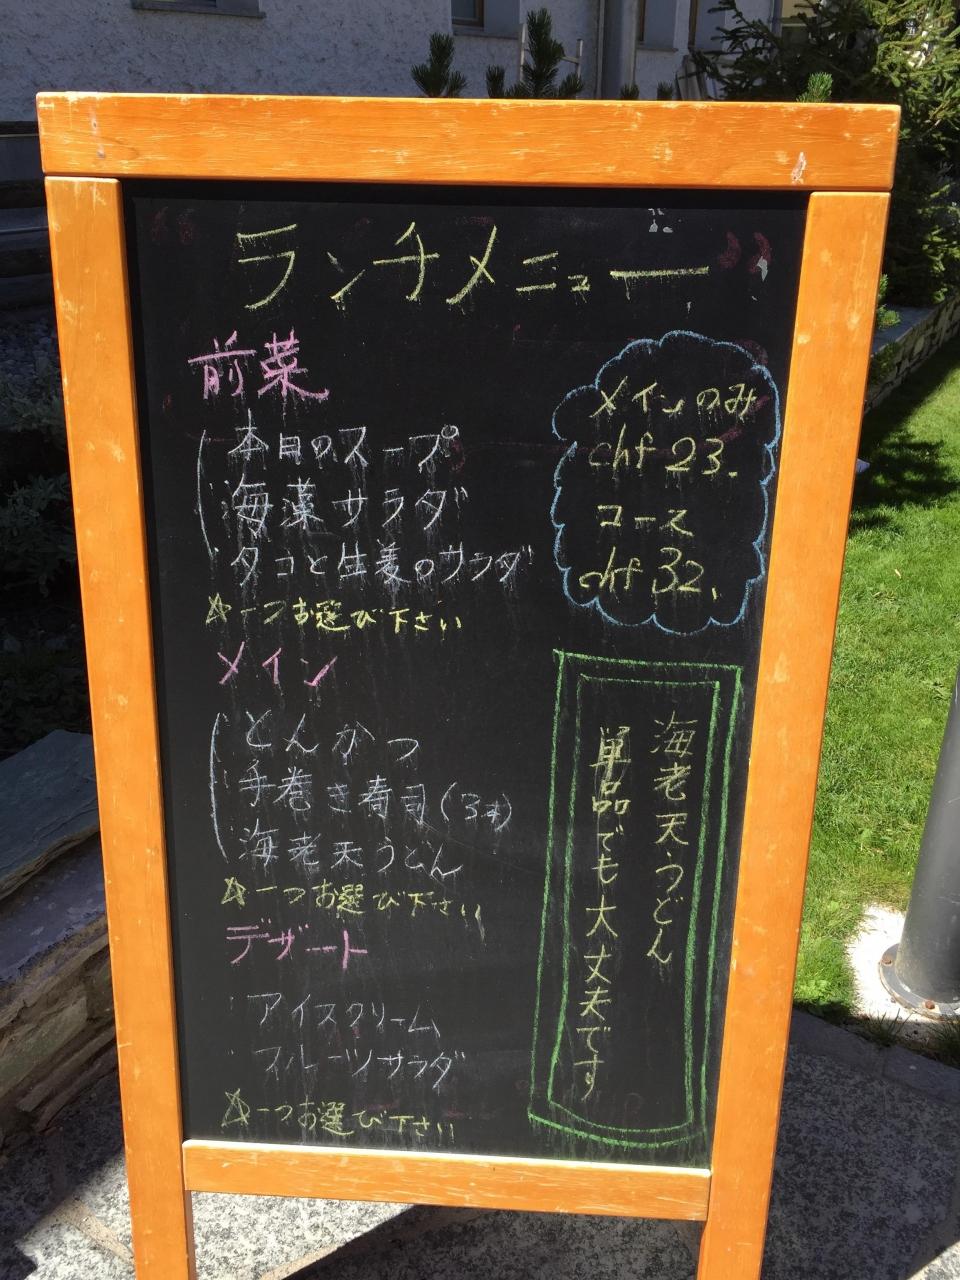 ランチメニュー
前菜
本日のスープ
海藻サラダ
タコと生姜のサラダ
☆一つお選び下さい
メイン
とんかつ
手巻き寿司(3本)
海老天うどん
☆一つお選び下さい
デザート
アイスクリーム
フルーツサラダ
☆一つお選び下さい
メインのみ
chf 23.
コース
chf 32.
海老天うどん
単品でも大丈夫です